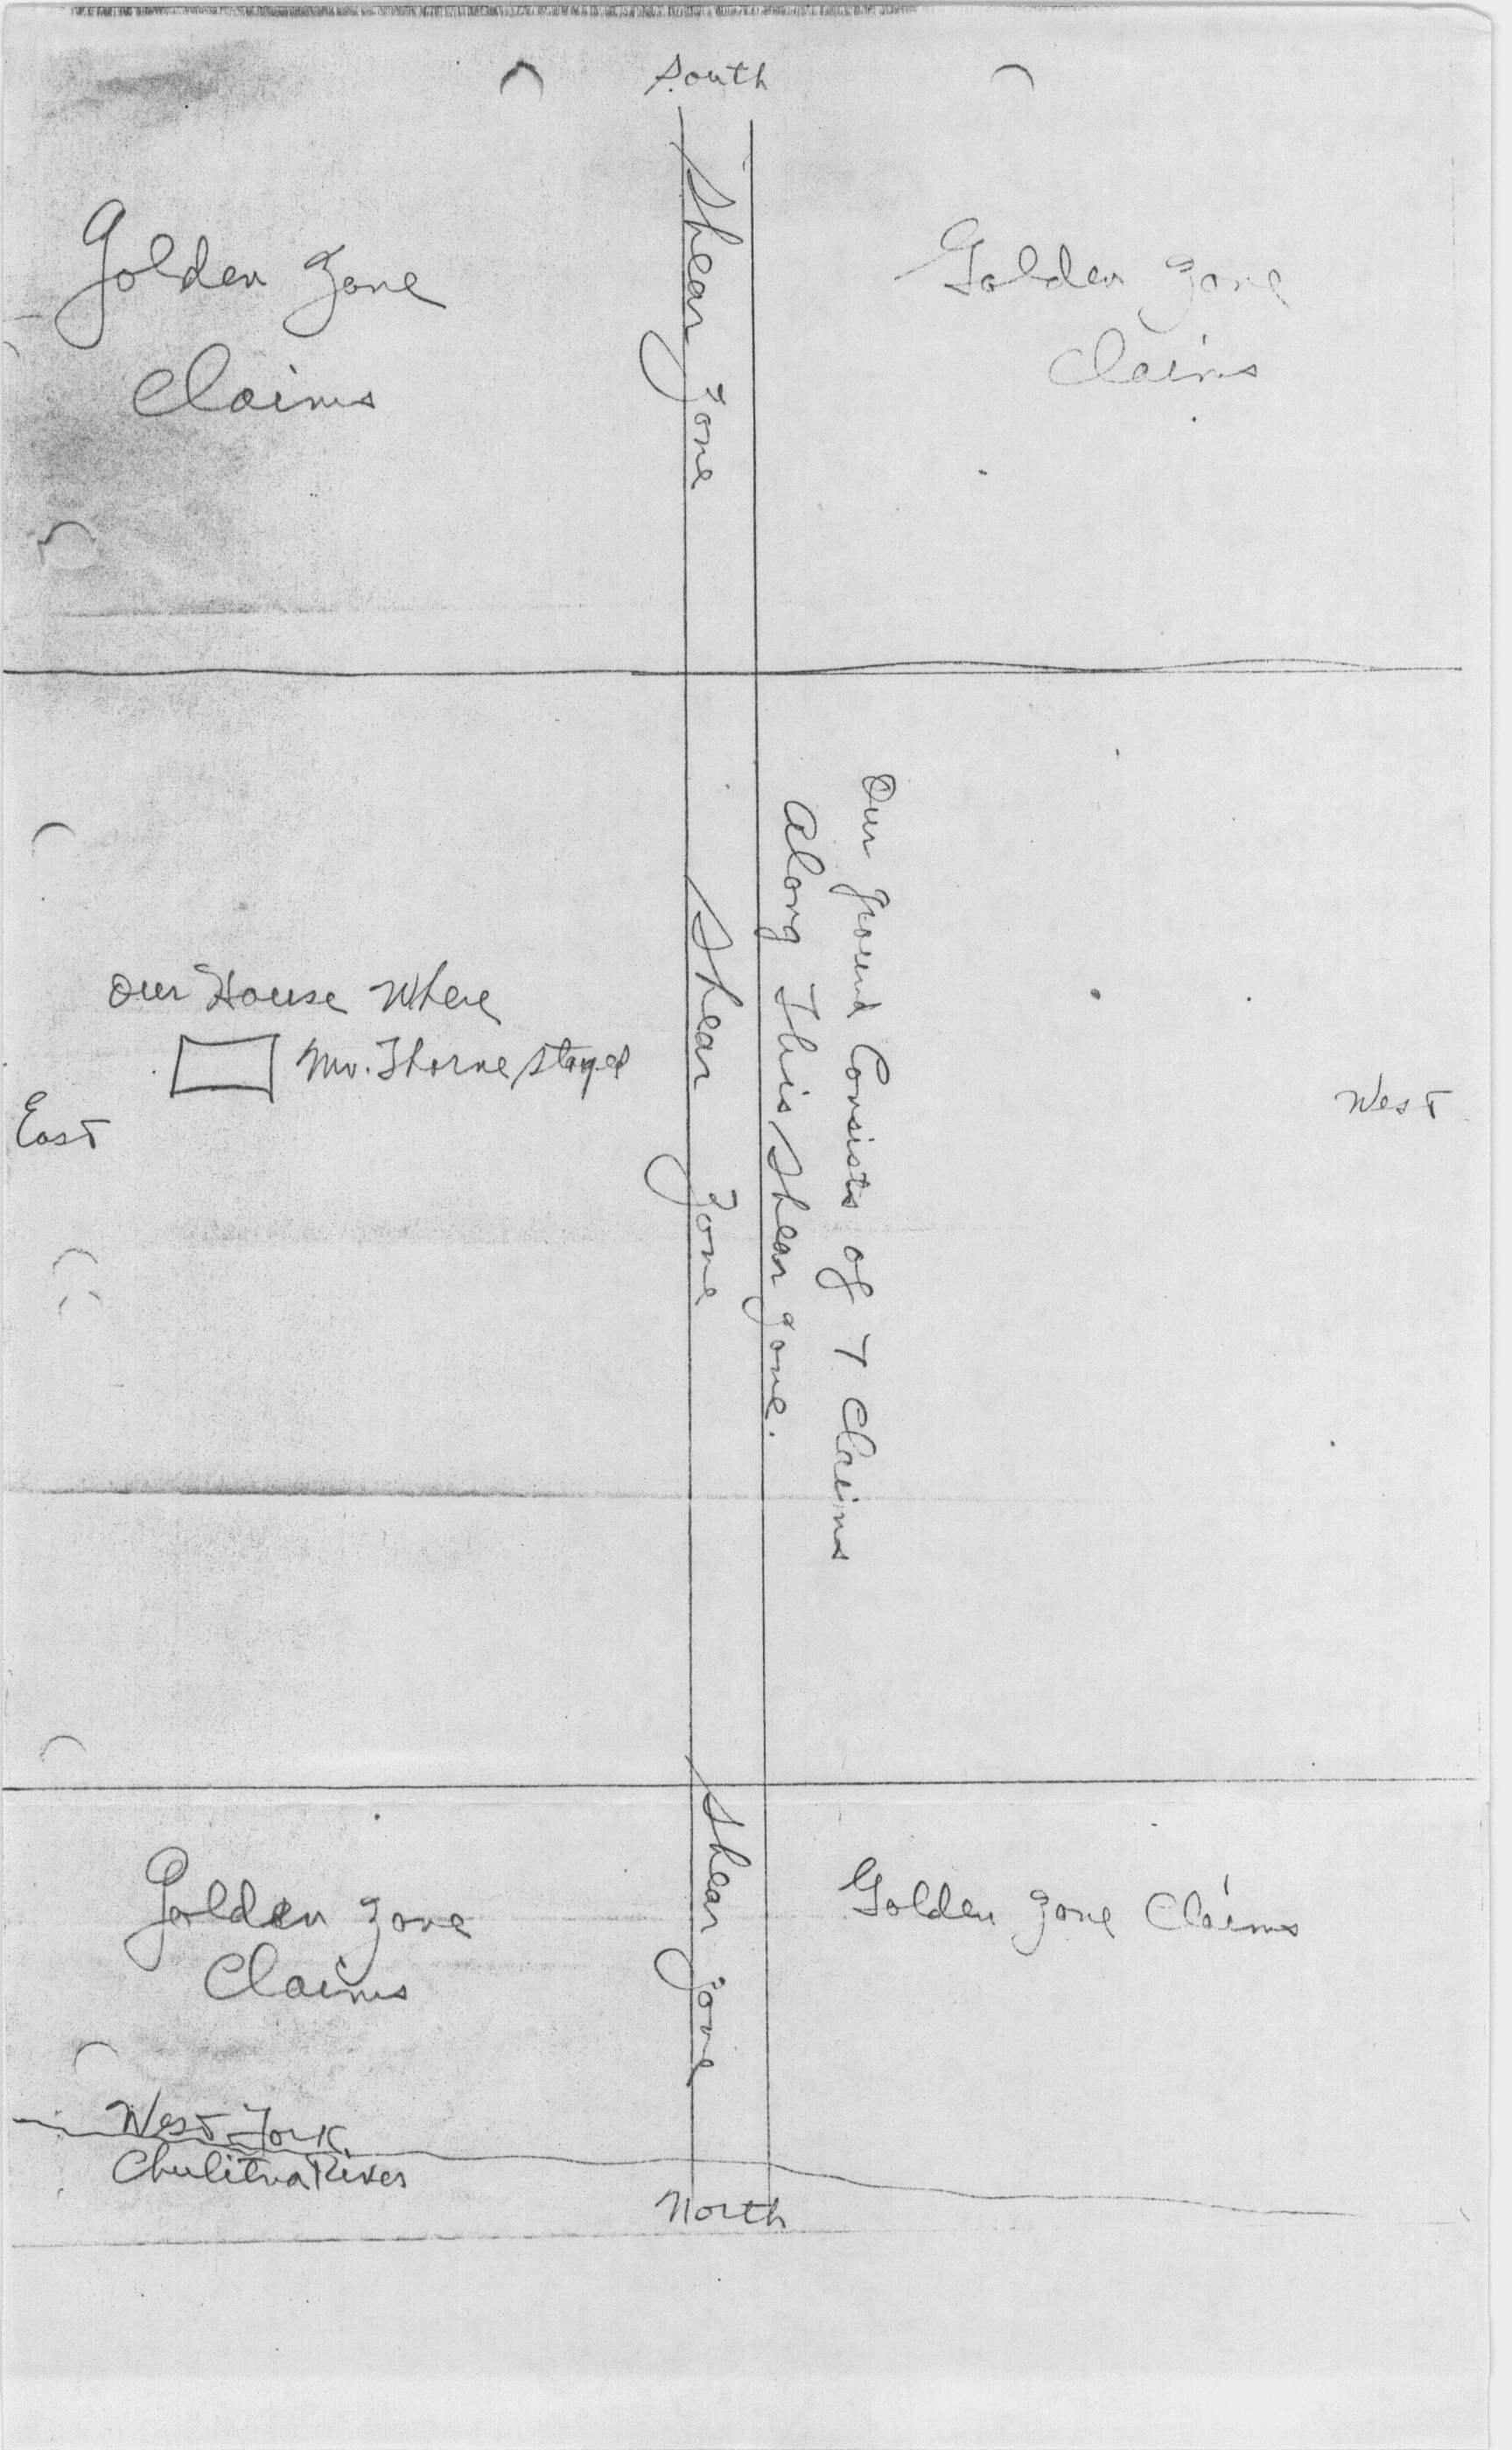 South
Golden Zone
Claims
Shear Zone
Golden Zone
Claims
Our ground Consists of 7 Claims
Along This Shear Zone.
Our House Where
Mr. Thorne stayed
Shear Zone
East
West
Golden Zone
Claims
Shear Zone
Golden Zone Claims
West Fork
Chulitna River
North